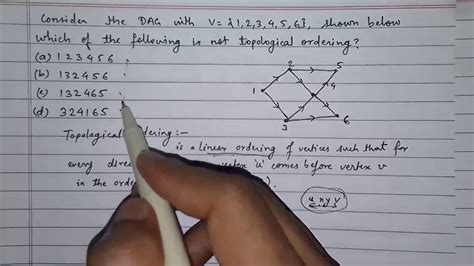 Consider the DAG with V = {1,2,3,4,5,6}, shown below
which of the following is not topological ordering?
(a) 1 2 3 4 5 6
(b) 1 3 2 4 5 6
(c) 1 3 2 4 6 5
(d) 3 2 4 1 6 5
2
5
1
4
3
6
Topological ordering :-
is a linear ordering of vertices such that for
every vertex 'u' comes before vertex v
in the
u x y v